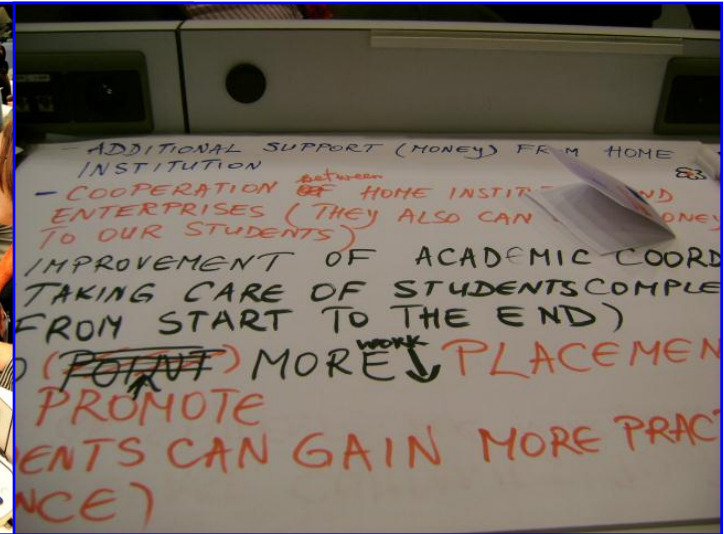 - ADDITIONAL SUPPORT (MONEY) FROM HOME
INSTITUTION
between
- COOPERATION OF HOME INSTIT ND
ENTERPRISES (THEY ALSO CAN ONEY
TO OUR STUDENTS)
IMPROVEMENT OF ACADEMIC COORD
TAKING CARE OF STUDENTS COMPLE
FROM START TO THE END)
WORK
(POINT) MORE PLACEMEN
PROMOTE
ENTS CAN GAIN MORE PRAC
NCE)